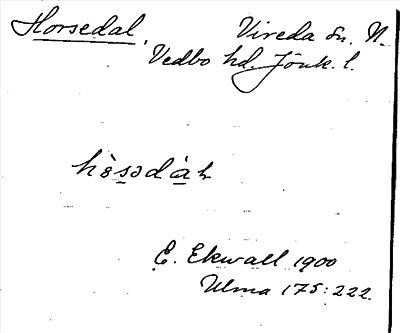 Horsedal, Vireda sn. N.
Vedbo hd. Jönk. l.
E. Ekwall 1900
Ulma 175:222.